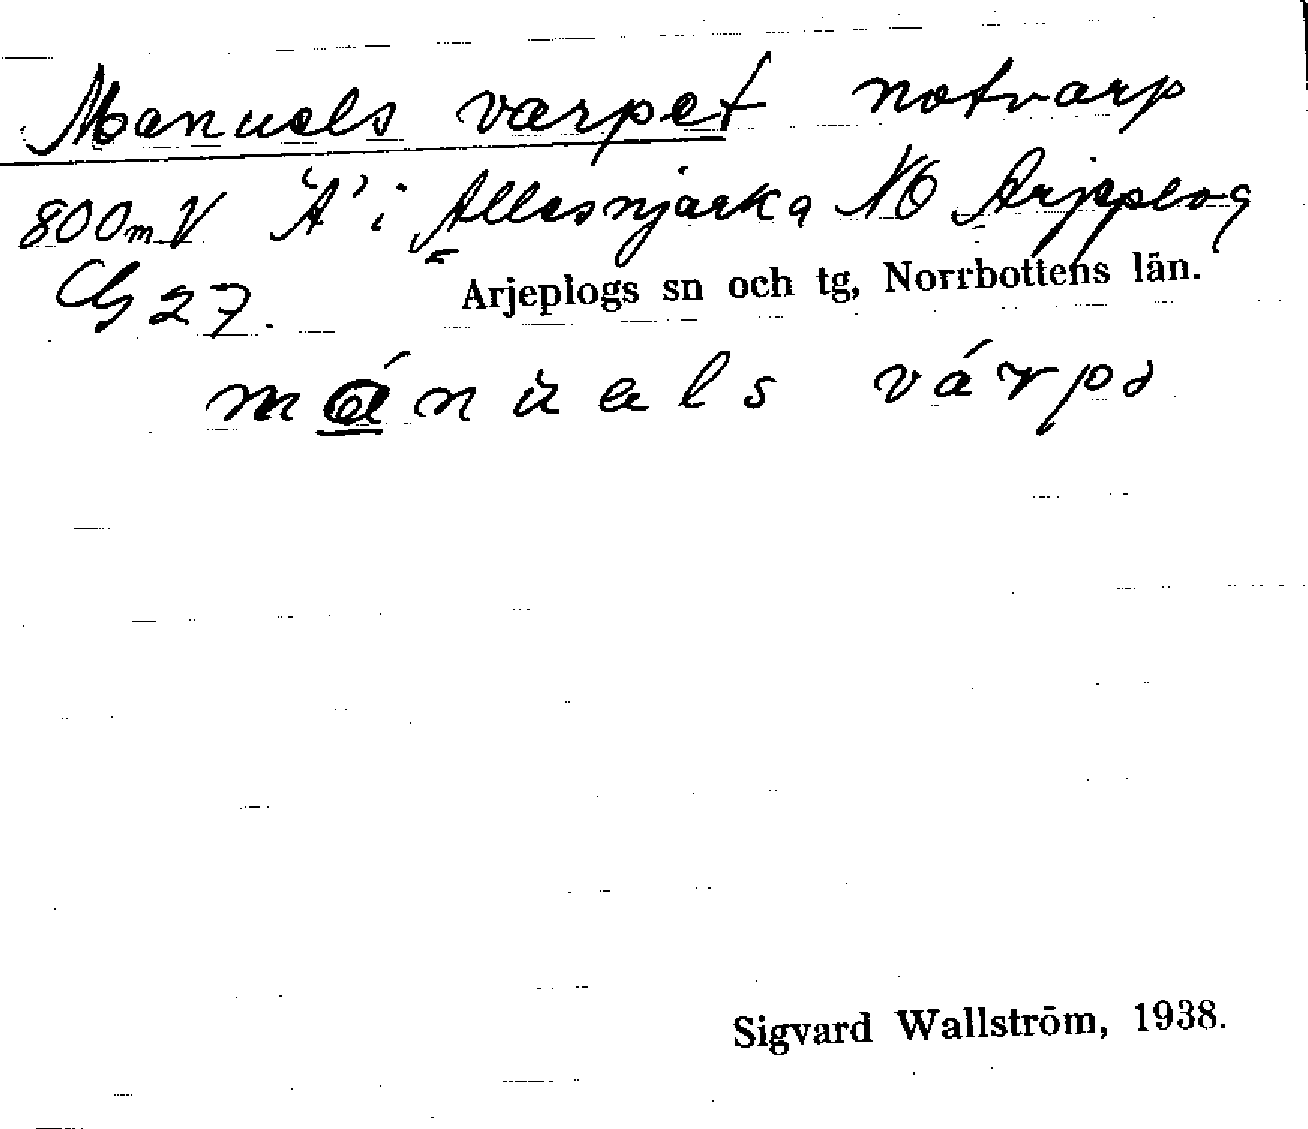 Manuels varpet notvarp
800 m V 'A' i Allesnjarka NO Arjeplog
G 27.
Arjeplogs sn och tg, Norrbottens län.
mánu̇els várpə
Sigvard Wallström, 1938.